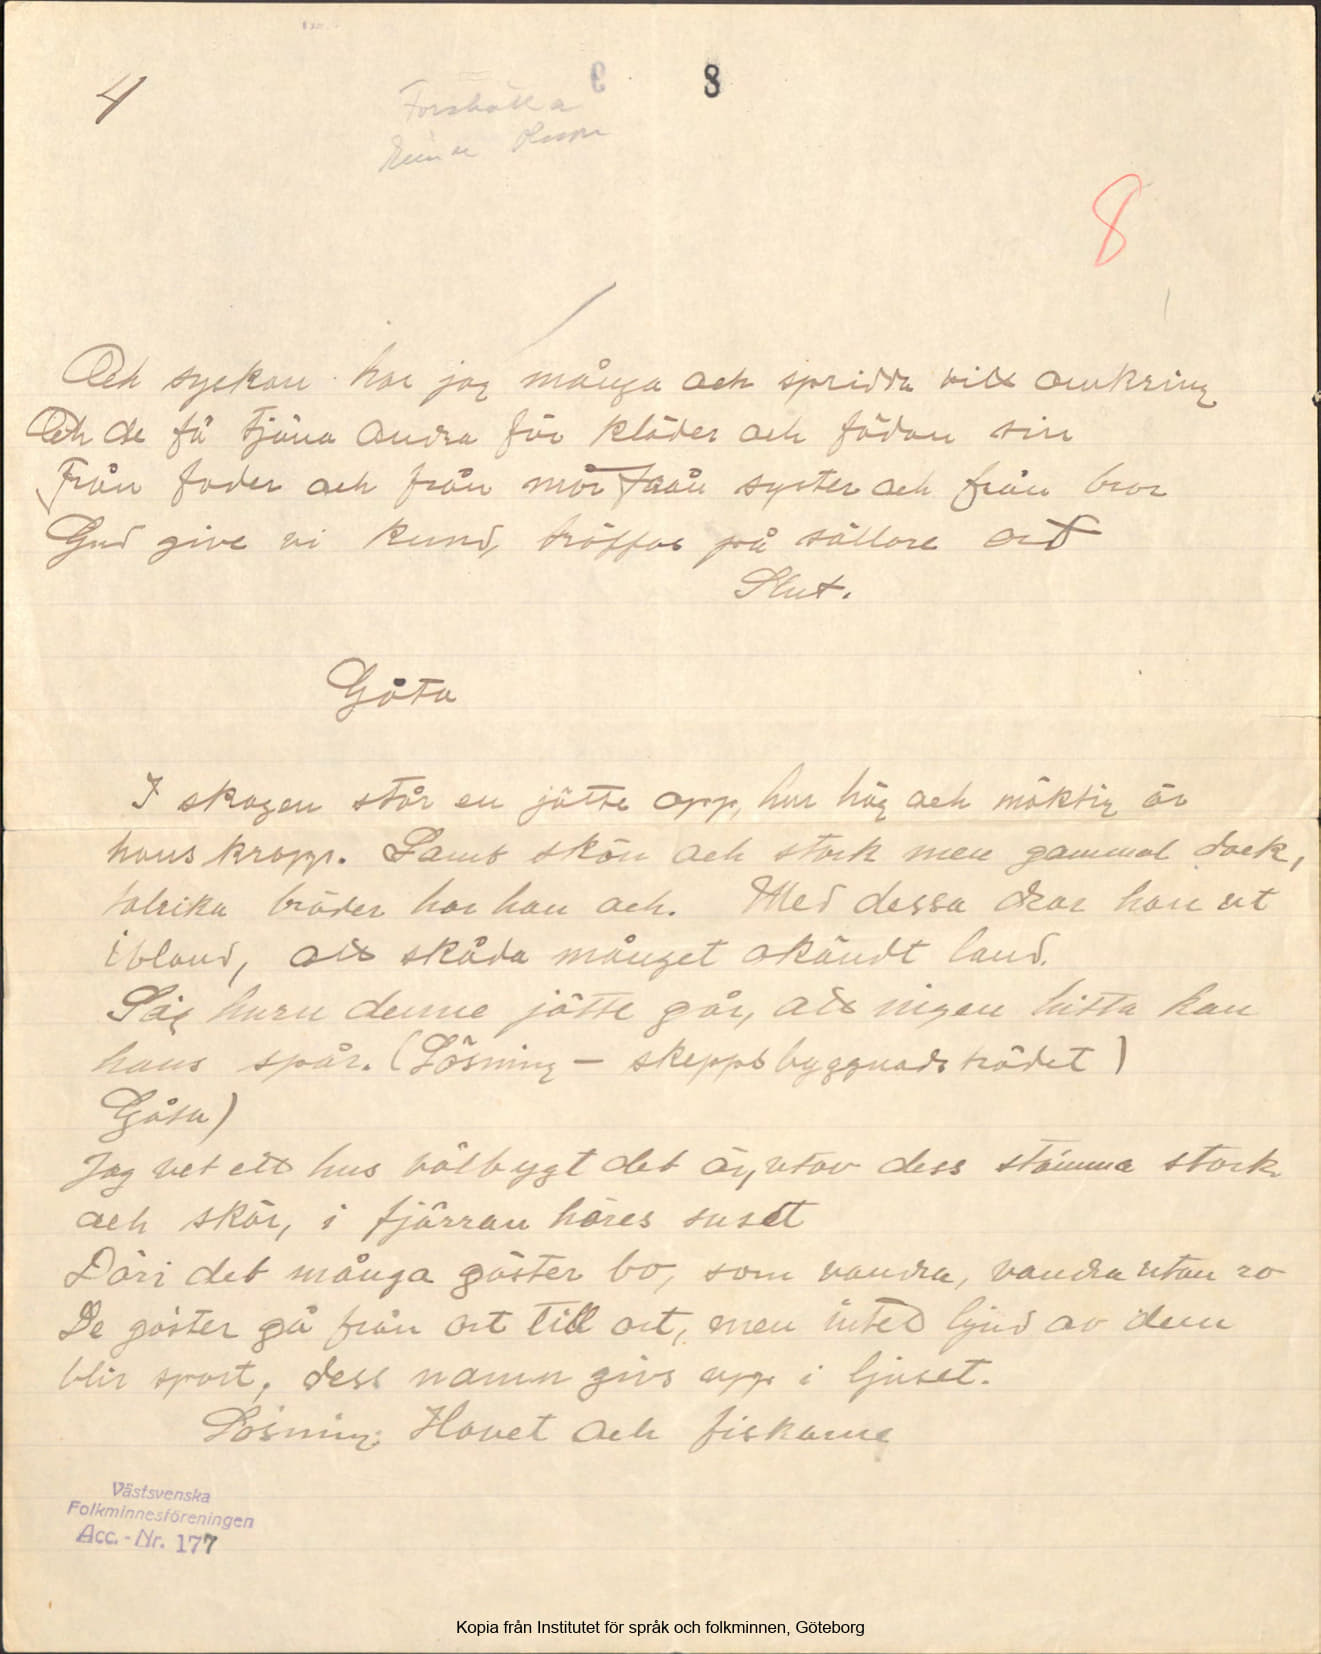 4
8
Forshälla
8
Och syskon har jag många och spridda vitt omkring
Och de få tjäna andra för kläder och födan sin
Från fader och från mor från syster och från bror
Gud give vi kund, träffas på sällare ort
Slut.
Gåta
I skogen står en jätte opp, hur hög och mäktig är
hans kropp. Samt skön och stark men gammal dock,
talrika bröder har han ock. Med dessa drar han ut
ibland, att skåda månget okändt land.
Säg huru denne jätte går, att ingen hitta kan
hans spår. (Lösning – skeppsbyggnadsträdet)
Gåta)
Jag vet ett hus välbygt det är, utav dess stämma stark
och skär, i fjärran höres suset
Däri det många gäster bo, som vandra, vandra utan ro
De gäster gå från ort till ort, men intet ljud av dem
blir sport, dess namn givs upp i ljuset.
Lösning: Havet och fiskarne
Västsvenska
Folkminnesföreningen
Acc.-Nr. 177
Kopia från Institutet för språk och folkminnen, Göteborg